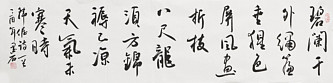 碧闌干
外繡簾
垂猩色
屏風畫
折枝
八尺龍
須方錦
褥已凉
天氣未
寒時
韓偓詩